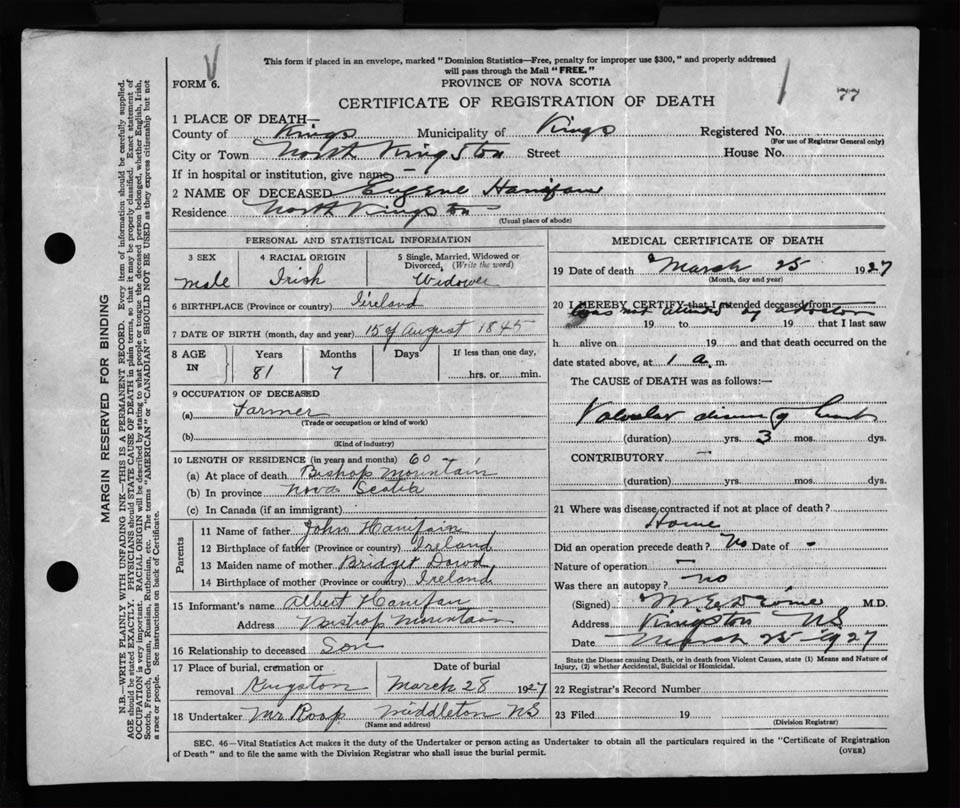 This form if placed in an envelope, marked "Dominion Statistics—Free, penalty for improper use $300," and properly addressed
will pass through the Mail "FREE."
FORM 6.
PROVINCE OF NOVA SCOTIA
77
CERTIFICATE OF REGISTRATION OF DEATH
1 PLACE OF DEATH—
County of Kings Municipality of Kings Registered No.
(For use of Registrar General only)
City or Town North Kingston Street House No.
If in hospital or institution, give name —
2 NAME OF DECEASED Eugene Hanifan
Residence North Kingston
(Usual place of abode)
PERSONAL AND STATISTICAL INFORMATION
3 SEX male
4 RACIAL ORIGIN Irish
5 Single, Married, Widowed or Divorced, (Write the word) Widower
6 BIRTHPLACE (Province or country) Ireland
7 DATE OF BIRTH (month, day and year) 15 of August 1845
8 AGE IN Years 81 Months 7 Days If less than one day, hrs. or min.
9 OCCUPATION OF DECEASED
(a) Farmer
(Trade or occupation or kind of work)
(b)
(Kind of industry)
10 LENGTH OF RESIDENCE (in years and months) 60 –
(a) At place of death Bishop Mountain
(b) In province Nova Scotia
(c) In Canada (if an immigrant)
Parents
11 Name of father John Hanifain
12 Birthplace of father (Province or country) Ireland
13 Maiden name of mother Bridget Dowd
14 Birthplace of mother (Province or country) Ireland
15 Informant's name Albert Hanifan
Address Bishop Mountain
16 Relationship to deceased Son
17 Place of burial, cremation or removal Kingston
Date of burial March 28 1927
18 Undertaker Mr Roop Middleton NS
(Name and address)
MEDICAL CERTIFICATE OF DEATH
19 Date of death March 25 1927
(Month, day and year)
20 I HEREBY CERTIFY that I attended deceased from
was not attended by a doctor
19 to 19 that I last saw
h alive on 19 and that death occurred on the
date stated above, at 1 a. m.
The CAUSE of DEATH was as follows:—
Valvular disease of heart
(duration) yrs. 3 mos. dys.
CONTRIBUTORY —
(duration) yrs. mos. dys.
21 Where was disease contracted if not at place of death?
Home
Did an operation precede death? No Date of -
Nature of operation —
Was there an autopsy? no
(Signed) M.D.
Address Kingston NS
Date March 25 1927
State the Disease causing Death, or in death from Violent Causes, state (1) Means and Nature of
Injury, (2) whether Accidental, Suicidal or Homicidal.
22 Registrar's Record Number
23 Filed 19
(Division Registrar)
SEC. 46—Vital Statistics Act makes it the duty of the Undertaker or person acting as Undertaker to obtain all the particulars required in the "Certificate of Registration
of Death" and to file the same with the Division Registrar who shall issue the burial permit.
(OVER)
MARGIN RESERVED FOR BINDING
N.B.—WRITE PLAINLY WITH UNFADING INK—THIS IS A PERMANENT RECORD. Every item of information should be carefully supplied.
AGE should be stated EXACTLY. PHYSICIANS should STATE CAUSE OF DEATH in plain terms, so that it may be properly classified. Exact statement of
OCCUPATION is very important. RACIAL ORIGIN will be described by stating to what people or tongue the deceased person belonged, whether English, Irish,
Scotch, French, German, Russian, Ruthenian, etc. The terms "AMERICAN" or "CANADIAN" SHOULD NOT BE USED as they express citizenship but not
a race or people. See instructions on back of Certificate.